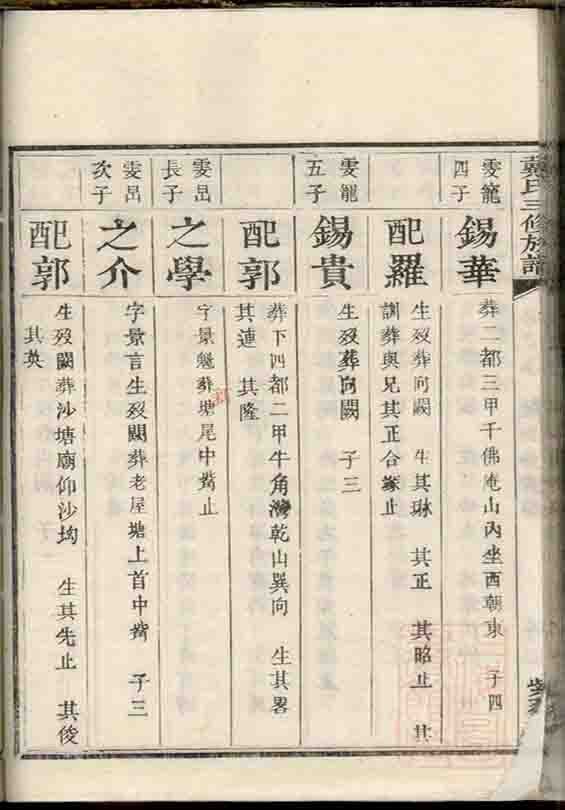 戴氏三修族譜
雯龍
四子
錫華
葬二都三甲千佛庵山內坐酉朝東 子四
配羅
生歿葬向闕 生其琳 其正 其昭止 其
訓葬與兄其正合塚止
雯龍
五子
錫貴
生歿葬向闕 子三
配郭
葬下四都二甲牛角灣乾山巽向 生其畧
其連 其隆
雯喦
長子
之學
字景魁葬塘尾中嵴止
雯喦
次子
之介
字景言生歿闕葬老屋塘上首中嵴 子三
配郭
生歿闕葬沙塘廟仰沙坳 生其先止 其俊
其英